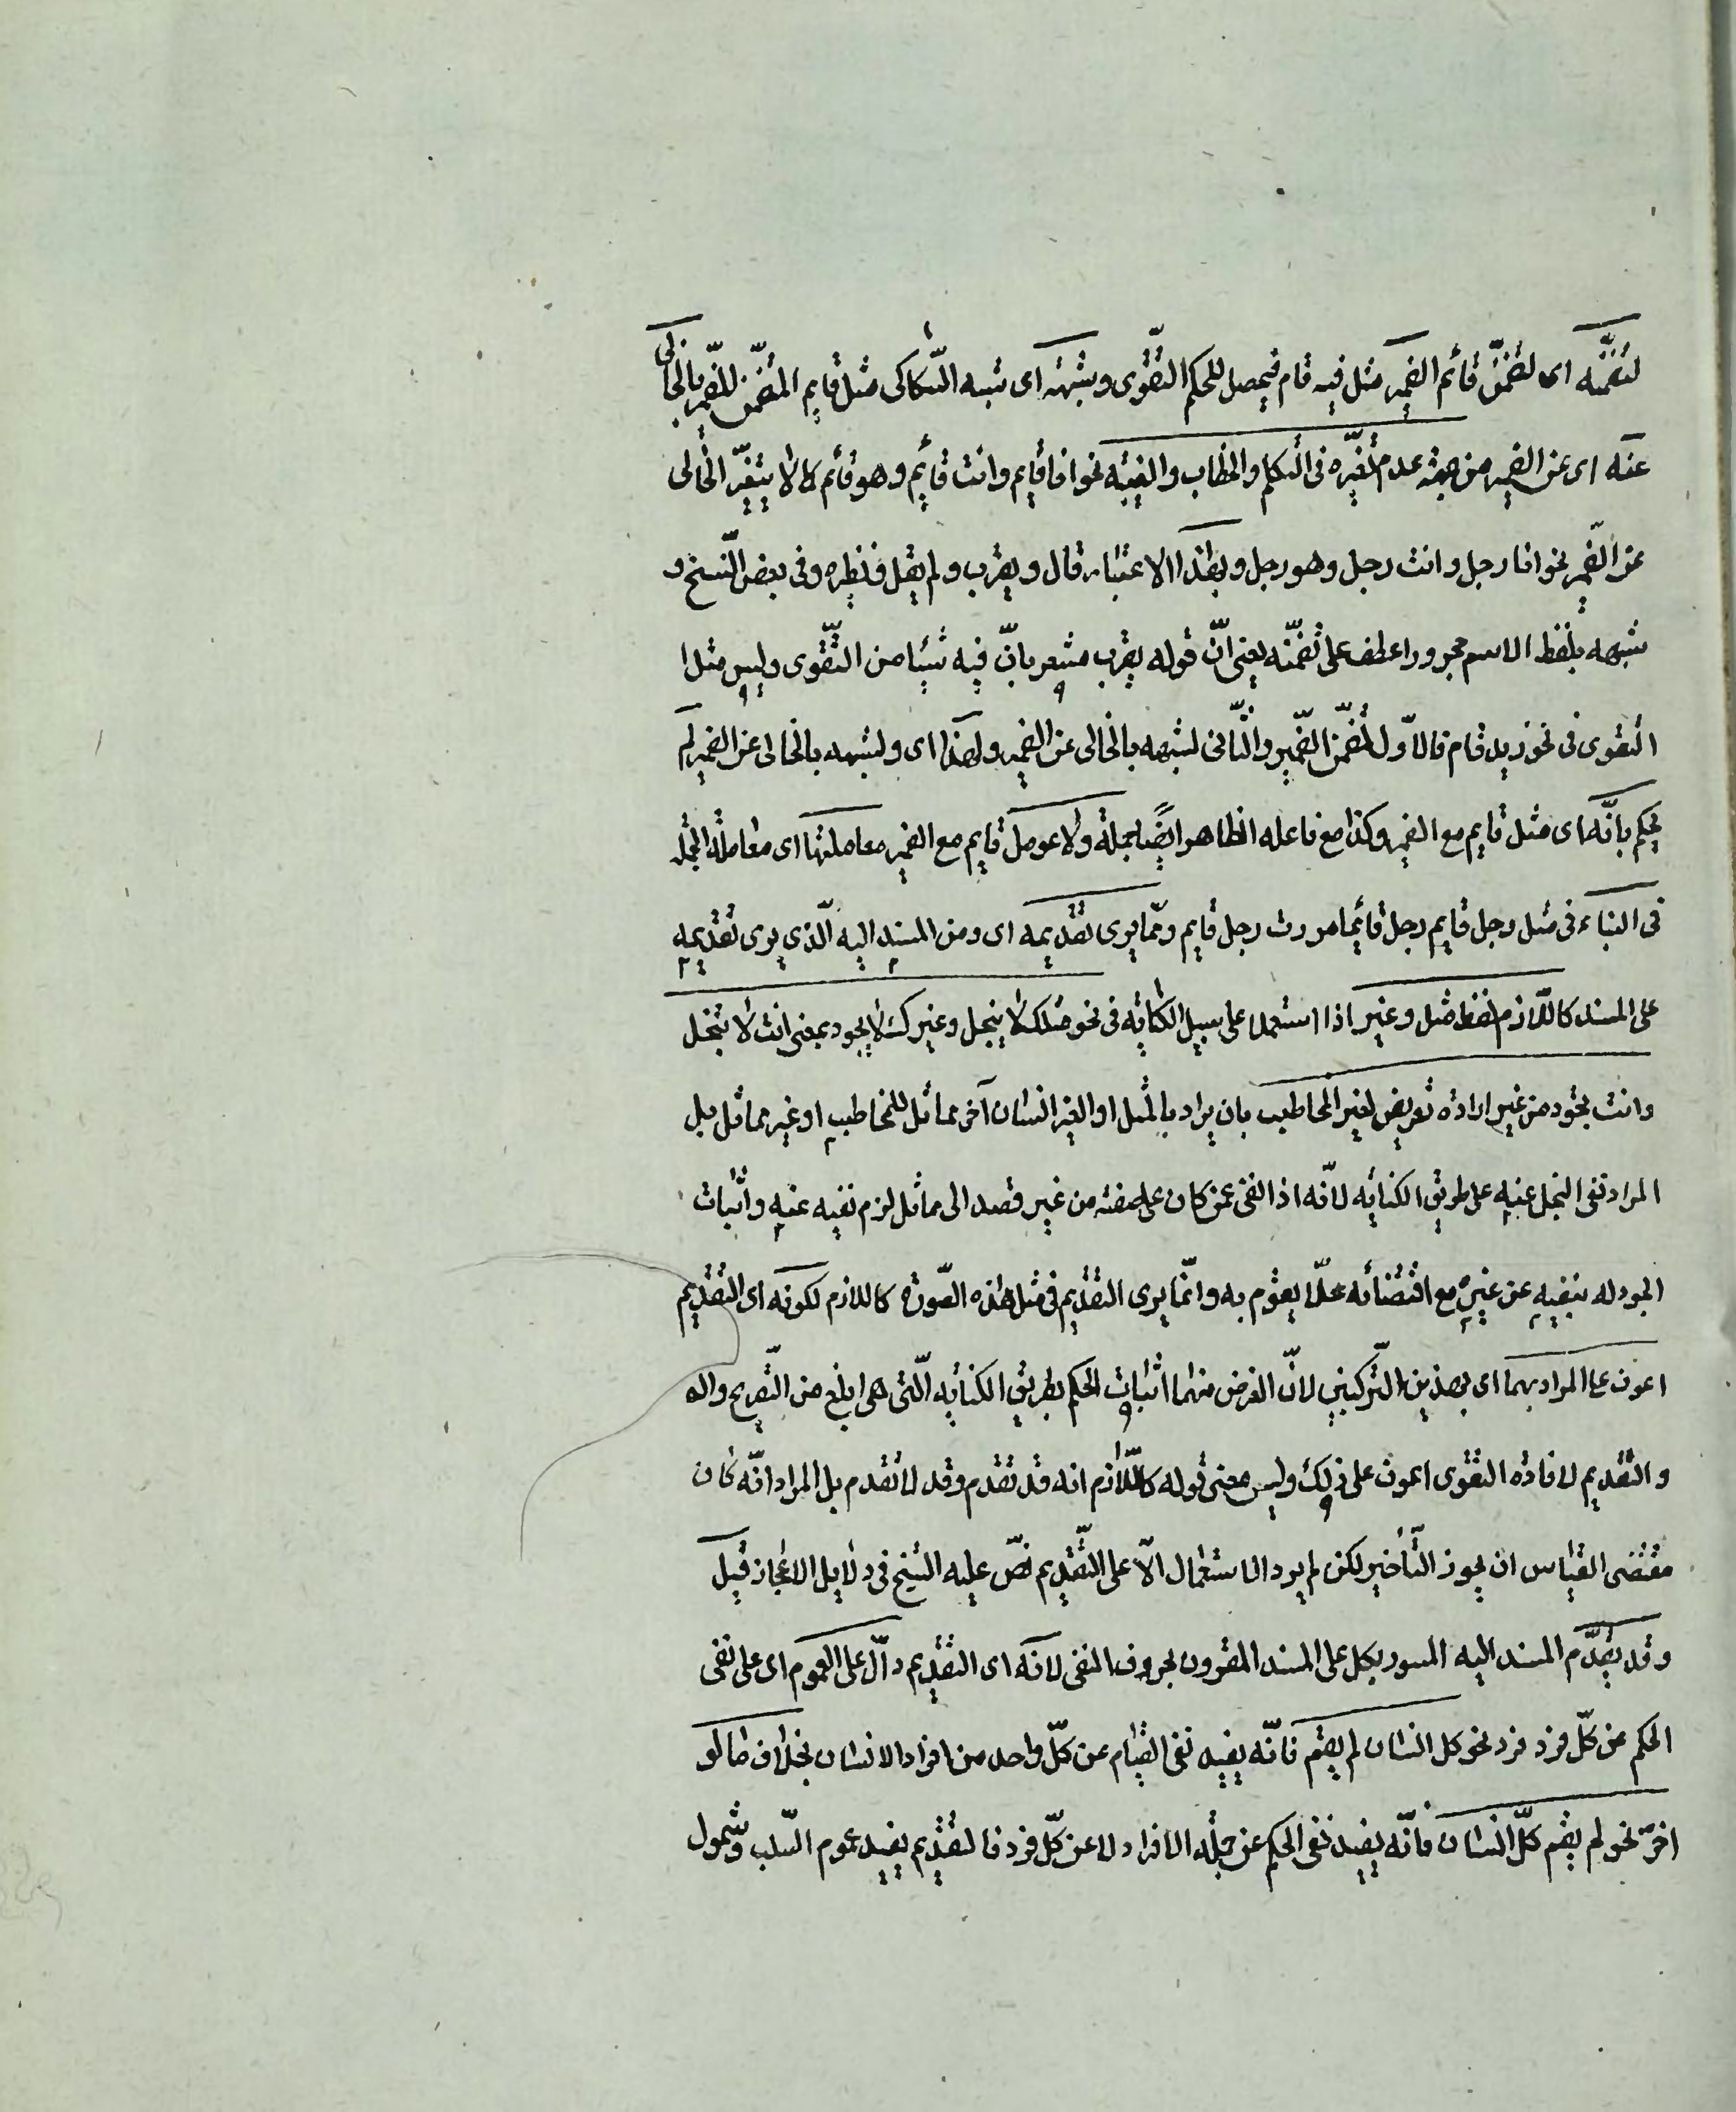 لتضمّنه اى لتضمّن قائم الضمير مثل فيه قام فيحصل للحكم التقوى وشبهه اى شبه السّكاكى مثل قايم المتضمّن للضّمير بالخالى
عنه اى عن الضمير من جهة عدم تغيّره فى التكلم والخطاب والغيبه نحو انا قايم وانت قايم وهو قائم كما لا يتغيّر الخالى
عن الضّمير نحو انا رجل وانت رجل وهو رجل وبهذا الاعتبار قال ويقرب ولم يقل ونظيره وفى بعض النّسخ و
شبهه بلفظ الاسم مجرورا عطف على تضمّنه يعنى انّ قوله يقرب مشعر بانّ فيه شيئا من التّقوى وليس مثل ا
التقوى فى نحو زيد قام فالاوّل لتضمّن الضّمير والثّانى لشبهه بالخالى عن الضمير ولهذا اى ولشبهه بالخالى عن الضمير لم
يحكم بانّه اى مثل قايم مع الضمير وكذا مع فاعله الظاهر ايضًا بجملة ولا عومل قايم مع الضمير معاملتها اى معاملة الجملة
فى البناء فى مثل رجل قايم رجل قائما مررت رجل قايم وممّا يرى تقديمه اى ومن المسند اليه الّذى يرى تقديمه
على المسند كاللّازم لفظ مثل وغير اذا استعملا على سبيل الكناية فى نحو مثلك لا يبخل وغيرك لا يجود بمعنى انت لا تبخل
وانت تجود من غير ارادة تعريض لغير المخاطب بان يراد بالمثل او الغير انسان آخر مماثل للمخاطب او غير مماثل بل
المراد نفى البخل عنه على طريق الكنايه لانّه اذا نفى عمن كان على صفته من غير قصد الى مماثل لزم نفيه عنه واثبات
الجود له بنفيه عن غيره مع اقتضائه محلّا يقوم به وانّما يرى التقديم فى مثل هذه الصّورة كاللازم لكونه اى التقديم
اعون على المراد بهما اى بهذين التّركيبين لانّ الغرض منهما اثبات الحكم بطريق الكنايه الّتى هى ابلغ من التّصريح والـ
والتقديم لافادة التقوى اعون على ذلك وليس معنى قوله كاللّازم انه قد تقدم وقد لا تقدم بل المراد انّه كان
مقتضى القياس ان يجوز التّأخير لكن لم يرد الاستعمال الّا على التّقديم نصّ عليه الشيخ فى دلايل الاعجاز قيل
وقد يقدّم المسند اليه المسور بكل على المسند المقرون بحروف النفى لانّه اى التقديم دالّ على العموم اى على نفى
الحكم عن كلّ فرد فرد نحو كل انسان لم يقم فانّه يفيد نفى القيام عن كلّ واحد من افراد الانسان بخلاف ما لو
اخّر نحو لم يقم كلّ انسان فانّه يفيد نفى الحكم عن جملة الافراد لا عن كلّ فرد فالتقديم يفيد عموم السّلب وشمول